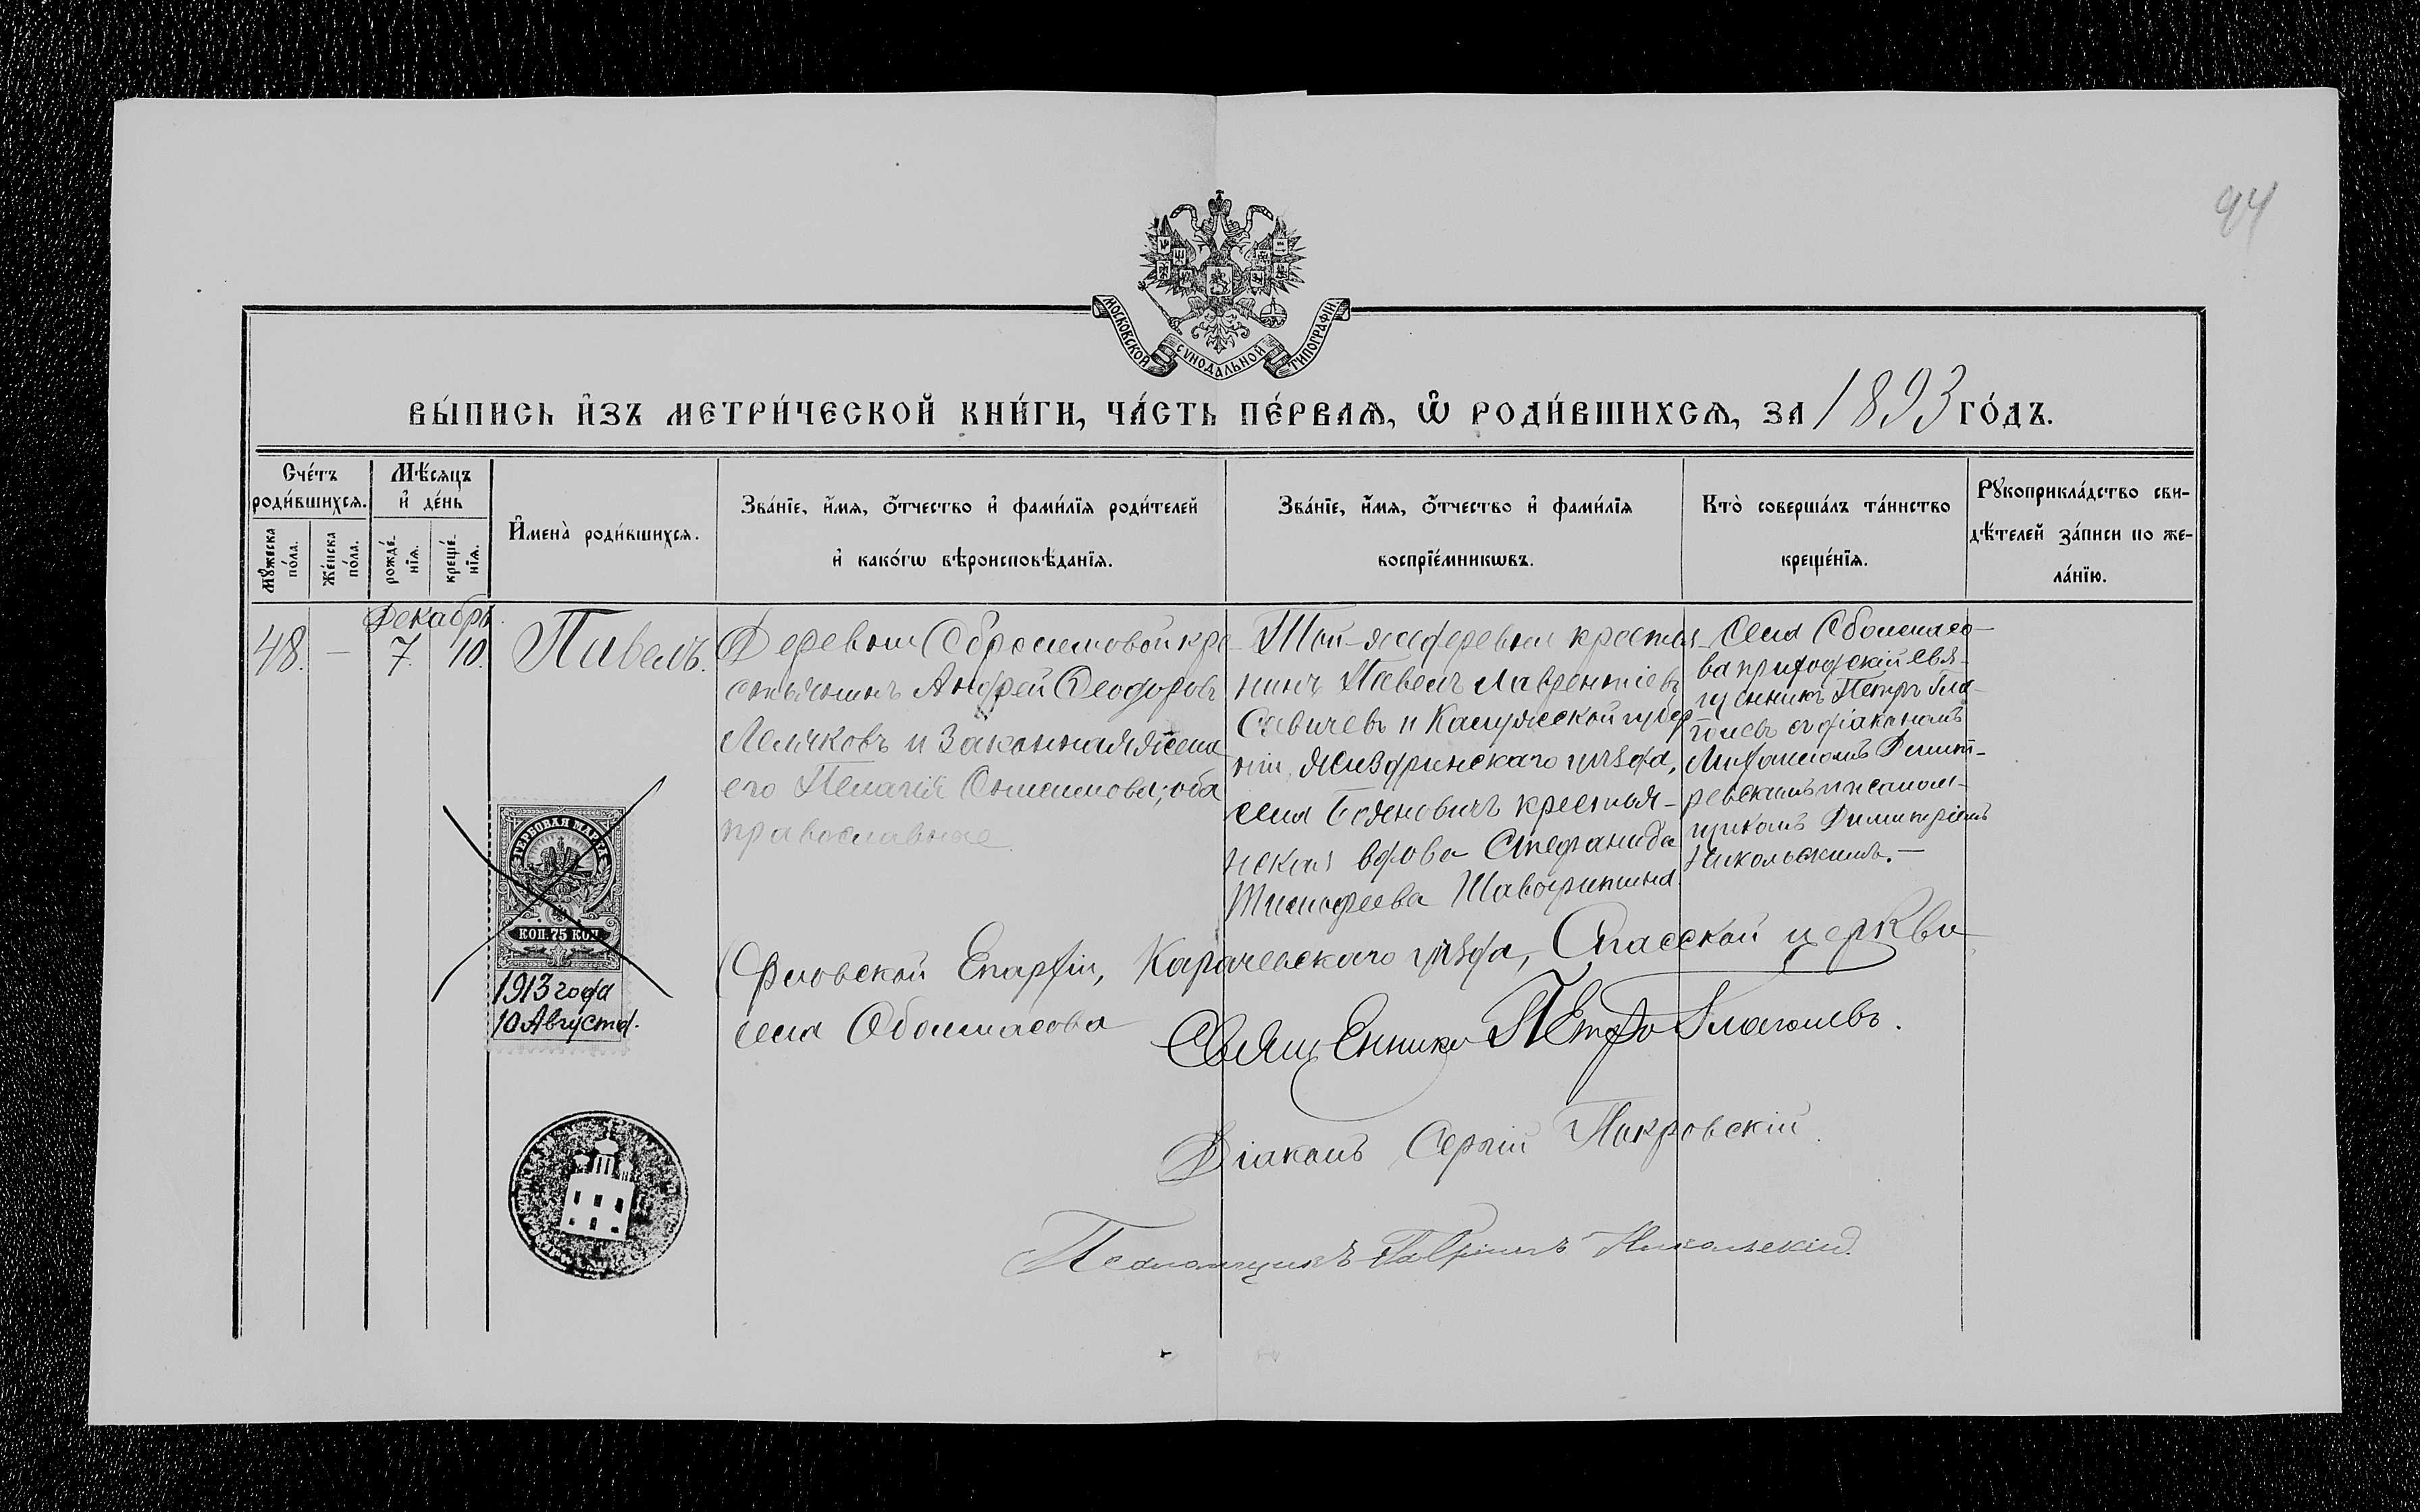 94
МОСКОВСКОЙ СУНОДАЛЬНОЙ ТИПОГРАФІИ
ВЫПИСЬ ИЗЪ МЕТРИЧЕСКОЙ КНИГИ, ЧАСТЬ ПЕРВАЯ, Ѡ РОДИВШИХСЯ, ЗА 1893 ГОДЪ.
Счетъ родившихся.
Мужеска пола.
Женска пола.
Мѣсяцъ и день
рожденія.
крещенія.
Имена родившихся.
Званіе, имя, отчество и фамилія родителей
и какогѡ вѣроисповѣданія.
Званіе, имя, отчество и фамилія
воспріемникѡвъ.
Кто совершалъ таинство
крещенія.
Рукоприкладство сви-
дѣтелей записи по же-
ланію.
Декабрь
48. — 7. 10. Павелъ.
Деревни кре-
стьянинъ Андрей Ѳеодоровъ
Лемяковъ и законная жена
его Пелагія оба
православные
Той-же деревни крестья-
нинъ Павелъ Лаврентіевъ
Савичевъ и Калужской губер
ніи, Жиздринскаго уѣзда,
села Бояновичъ крестьян-
ская вдова Стефанида
Тимофеева
Села
ва приходскій свя-
щенникъ Петръ Гла-
голевъ съ діакономъ
Димит-
ревскимъ и псаломь-
щикомъ Димитріемъ
Никольскимъ. —
ГЕРБОВАЯ МАРКА
КОП. 75 КОП.
1913 года
10 Августа.
Орловской Епархіи, Карачевскаго уѣзда, Спасской церкви
села
Священникъ Петръ Глаголевъ.
Діаконъ Сергій Покровскій.
Псаломщикъ Гавріилъ Никольскій.